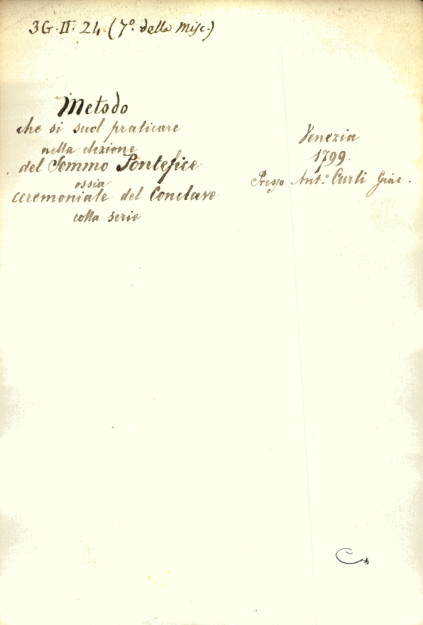 3G. II. 24. (7º. della Misc.)
Metodo
che si suol praticare
nella elezione
del Sommo Pontefice
ossia
ceremoniale del Conclave
colla serie
Venezia
1799.
Presso Ant.º Curti Giac.
C